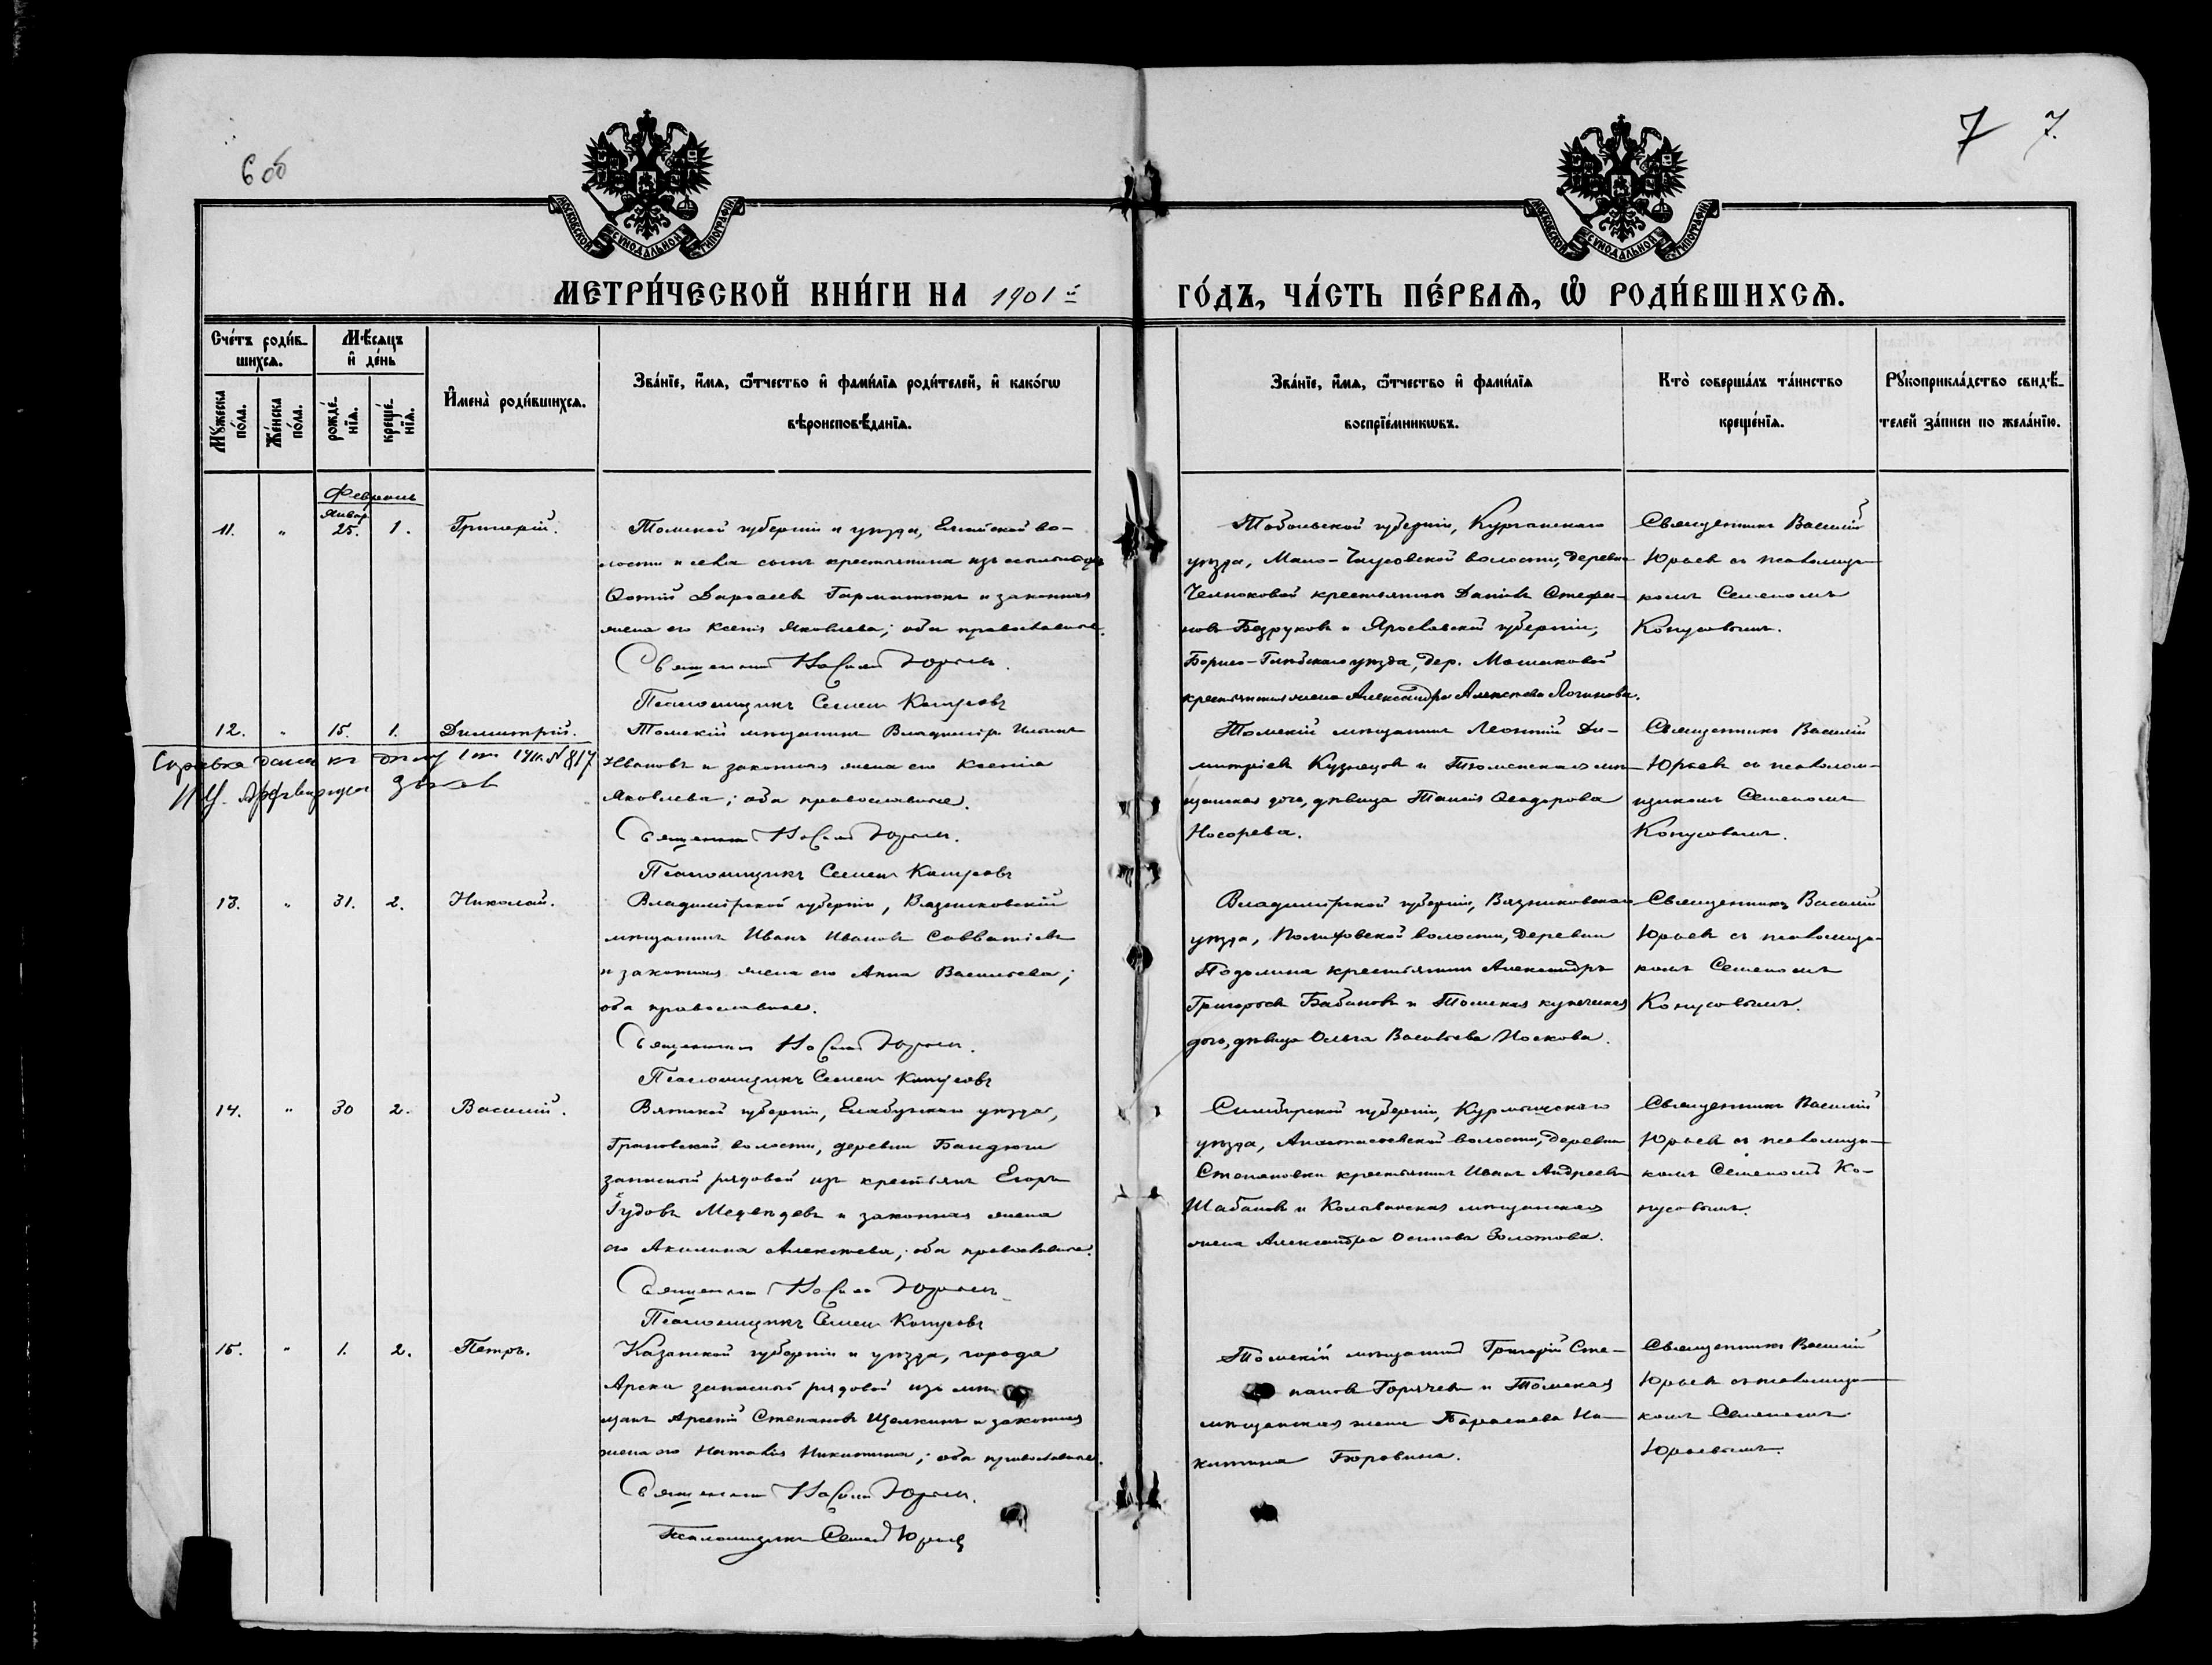 6 об
7 7.
МОСКОВСКОЙ СУНОДАЛЬНОЙ ТИПОГРАФІИ
МОСКОВСКОЙ СУНОДАЛЬНОЙ ТИПОГРАФІИ
МЕТРИ́ЧЕСКОЙ КНИ́ГИ НА 1901й
ГО́ДЪ, ЧА́СТЬ ПЕ́РВАѦ, Ѽ РОДИ́ВШИХСѦ.
Сче́тъ роди́в-
шихсѧ.
Мѣ́сѧцъ
и҆ де́нь
Мꙋ́жеска
по́ла.
Же́нска
по́ла.
рожде́-
нїѧ.
креще́-
нїѧ.
И҆мена̀ роди́вшихсѧ.
Зва́нїе, и҆́мѧ, ѻ҆́тчество и҆ фами́лїѧ роди́телей, и҆ како́гѡ
вѣроисповѣ́данїѧ.
Зва́нїе, и҆́мѧ, ѻ҆́тчество и҆ фами́лїѧ
воспрїе́мникѡвъ.
Кто̀ соверша́лъ та́инство
креще́нїѧ.
Рꙋкоприкла́дство свидѣ́-
телей за́писи по жела́нїю.
Февраль
Январ.
11. " 25. 1. Григорій.
Томской губерніи и уѣзда, Елгайской во-
лости и села сынъ крестьянина изъ ссыльныхъ
Фотій Гарматюкъ и законная
жена его Ксенія Яковлева; оба православные.
Священникъ Василій Юрьевъ.
Псаломщикъ Семенъ Конусовъ
Тобольской губерніи, Курганскаго
уѣзда, Мало-Чаусовской волости, деревни
Челноковой крестьянинъ Данілъ Стефа-
новъ Безруковъ и Ярославской губерніи,
Борисо-Глѣбскаго уѣзда, дер. Машаковой
крестьянская жена Александра Алексѣева Логинова.
Священникъ Василій
Юрьевъ съ псаломщи-
комъ Семеномъ
Конусовымъ.
12. " 15. 1. Димитрій.
Справка дана къ 1911. № 817
Томскій мѣщанинъ Владиміръ Ильинъ
Ивановъ и законная жена его Ксенія
Яковлева; оба православные.
Священникъ Василій Юрьевъ.
Псаломщикъ Семенъ Конусовъ
Томскій мѣщанинъ Леонтій Ди-
митріевъ Кузнецовъ и Тюменская мѣ-
щанская дочь, дѣвица Таисія Ѳеодорова
Носорева.
Священникъ Василій
Юрьевъ съ псалом-
щикомъ Семеномъ
Конусовымъ.
13. " 31. 2. Николай.
Владимірской губерніи, Вязниковскій
мѣщанинъ Иванъ Ивановъ Савватіевъ
и законная жена его Анна Васильева;
оба православные.
Священникъ Василій Юрьевъ.
Псаломщикъ Семенъ Конусовъ
Владимірской губерніи, Вязниковскаго
уѣзда, волости, деревни
Подолина крестьянинъ Александръ
Григорьевъ Бабановъ и Томская купеческая
дочь, дѣвица Ольга Васильева Носкова.
Священникъ Василій
Юрьевъ съ псаломщи-
комъ Семеномъ
Конусовымъ.
14. " 30 2. Василій.
Вятской губерніи, Елабужскаго уѣзда,
Граховской волости, деревни Бандюги
запасный рядовой изъ крестьянъ Егоръ
Гудовъ Медвѣдевъ и законная жена
его Акилина Алексѣева; оба православные.
Священникъ Василій Юрьевъ
Псаломщикъ Семенъ Конусовъ
Симбирской губерніи, Курмышскаго
уѣзда, Анастасовской волости, деревни
Степановки крестьянинъ Иванъ Андреевъ
Шабановъ и Колыванская мѣщанская
жена Александра Осипова Золотова.
Священникъ Василій
Юрьевъ съ псаломщи-
комъ Семеномъ Ко-
нусовымъ.
15. " 1. 2. Петръ.
Казанской губерніи и уѣзда, города
Арска запасный рядовой изъ мѣ-
щанъ Арсеній Степановъ Щелкинъ и законная
жена его Наталія Никитина; оба православные.
Священникъ Василій Юрьевъ.
Псаломщикъ Семенъ Юрьевъ
Томскій мѣщанинъ Григорій Сте-
пановъ Горячевъ и Томская
мѣщанская жена Параскева Ни-
китина Бюровина.
Священникъ Василій
Юрьевъ съ псаломщи-
комъ Семеномъ
Юрьевымъ.